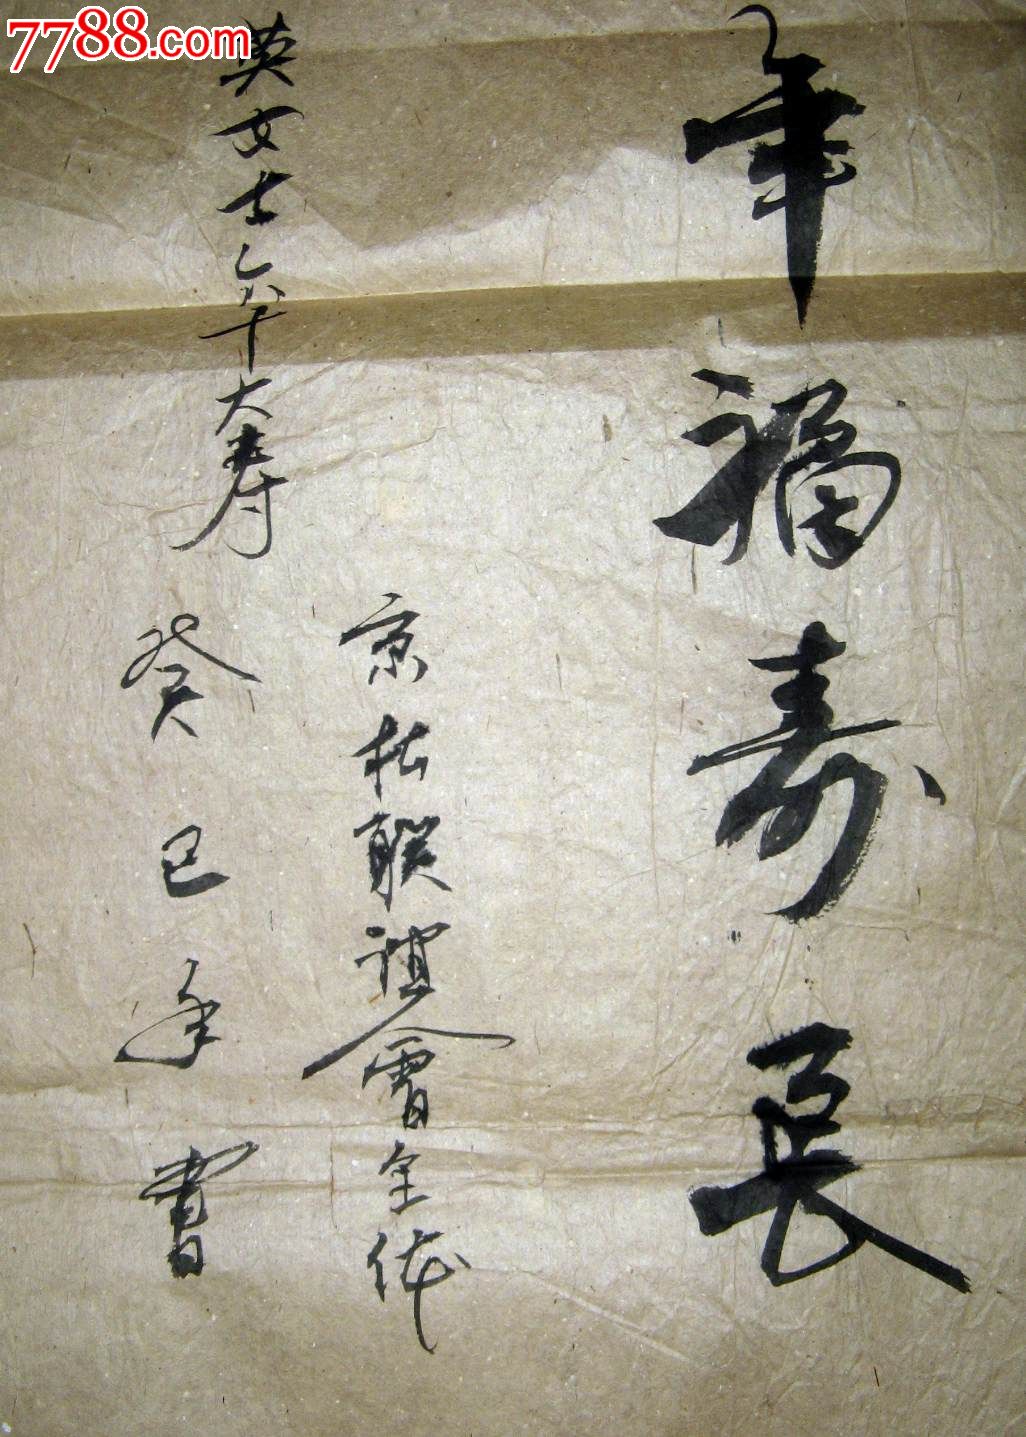 7788.com
年福寿長
京松联谊會全体
英女士六十大寿
癸巳年書